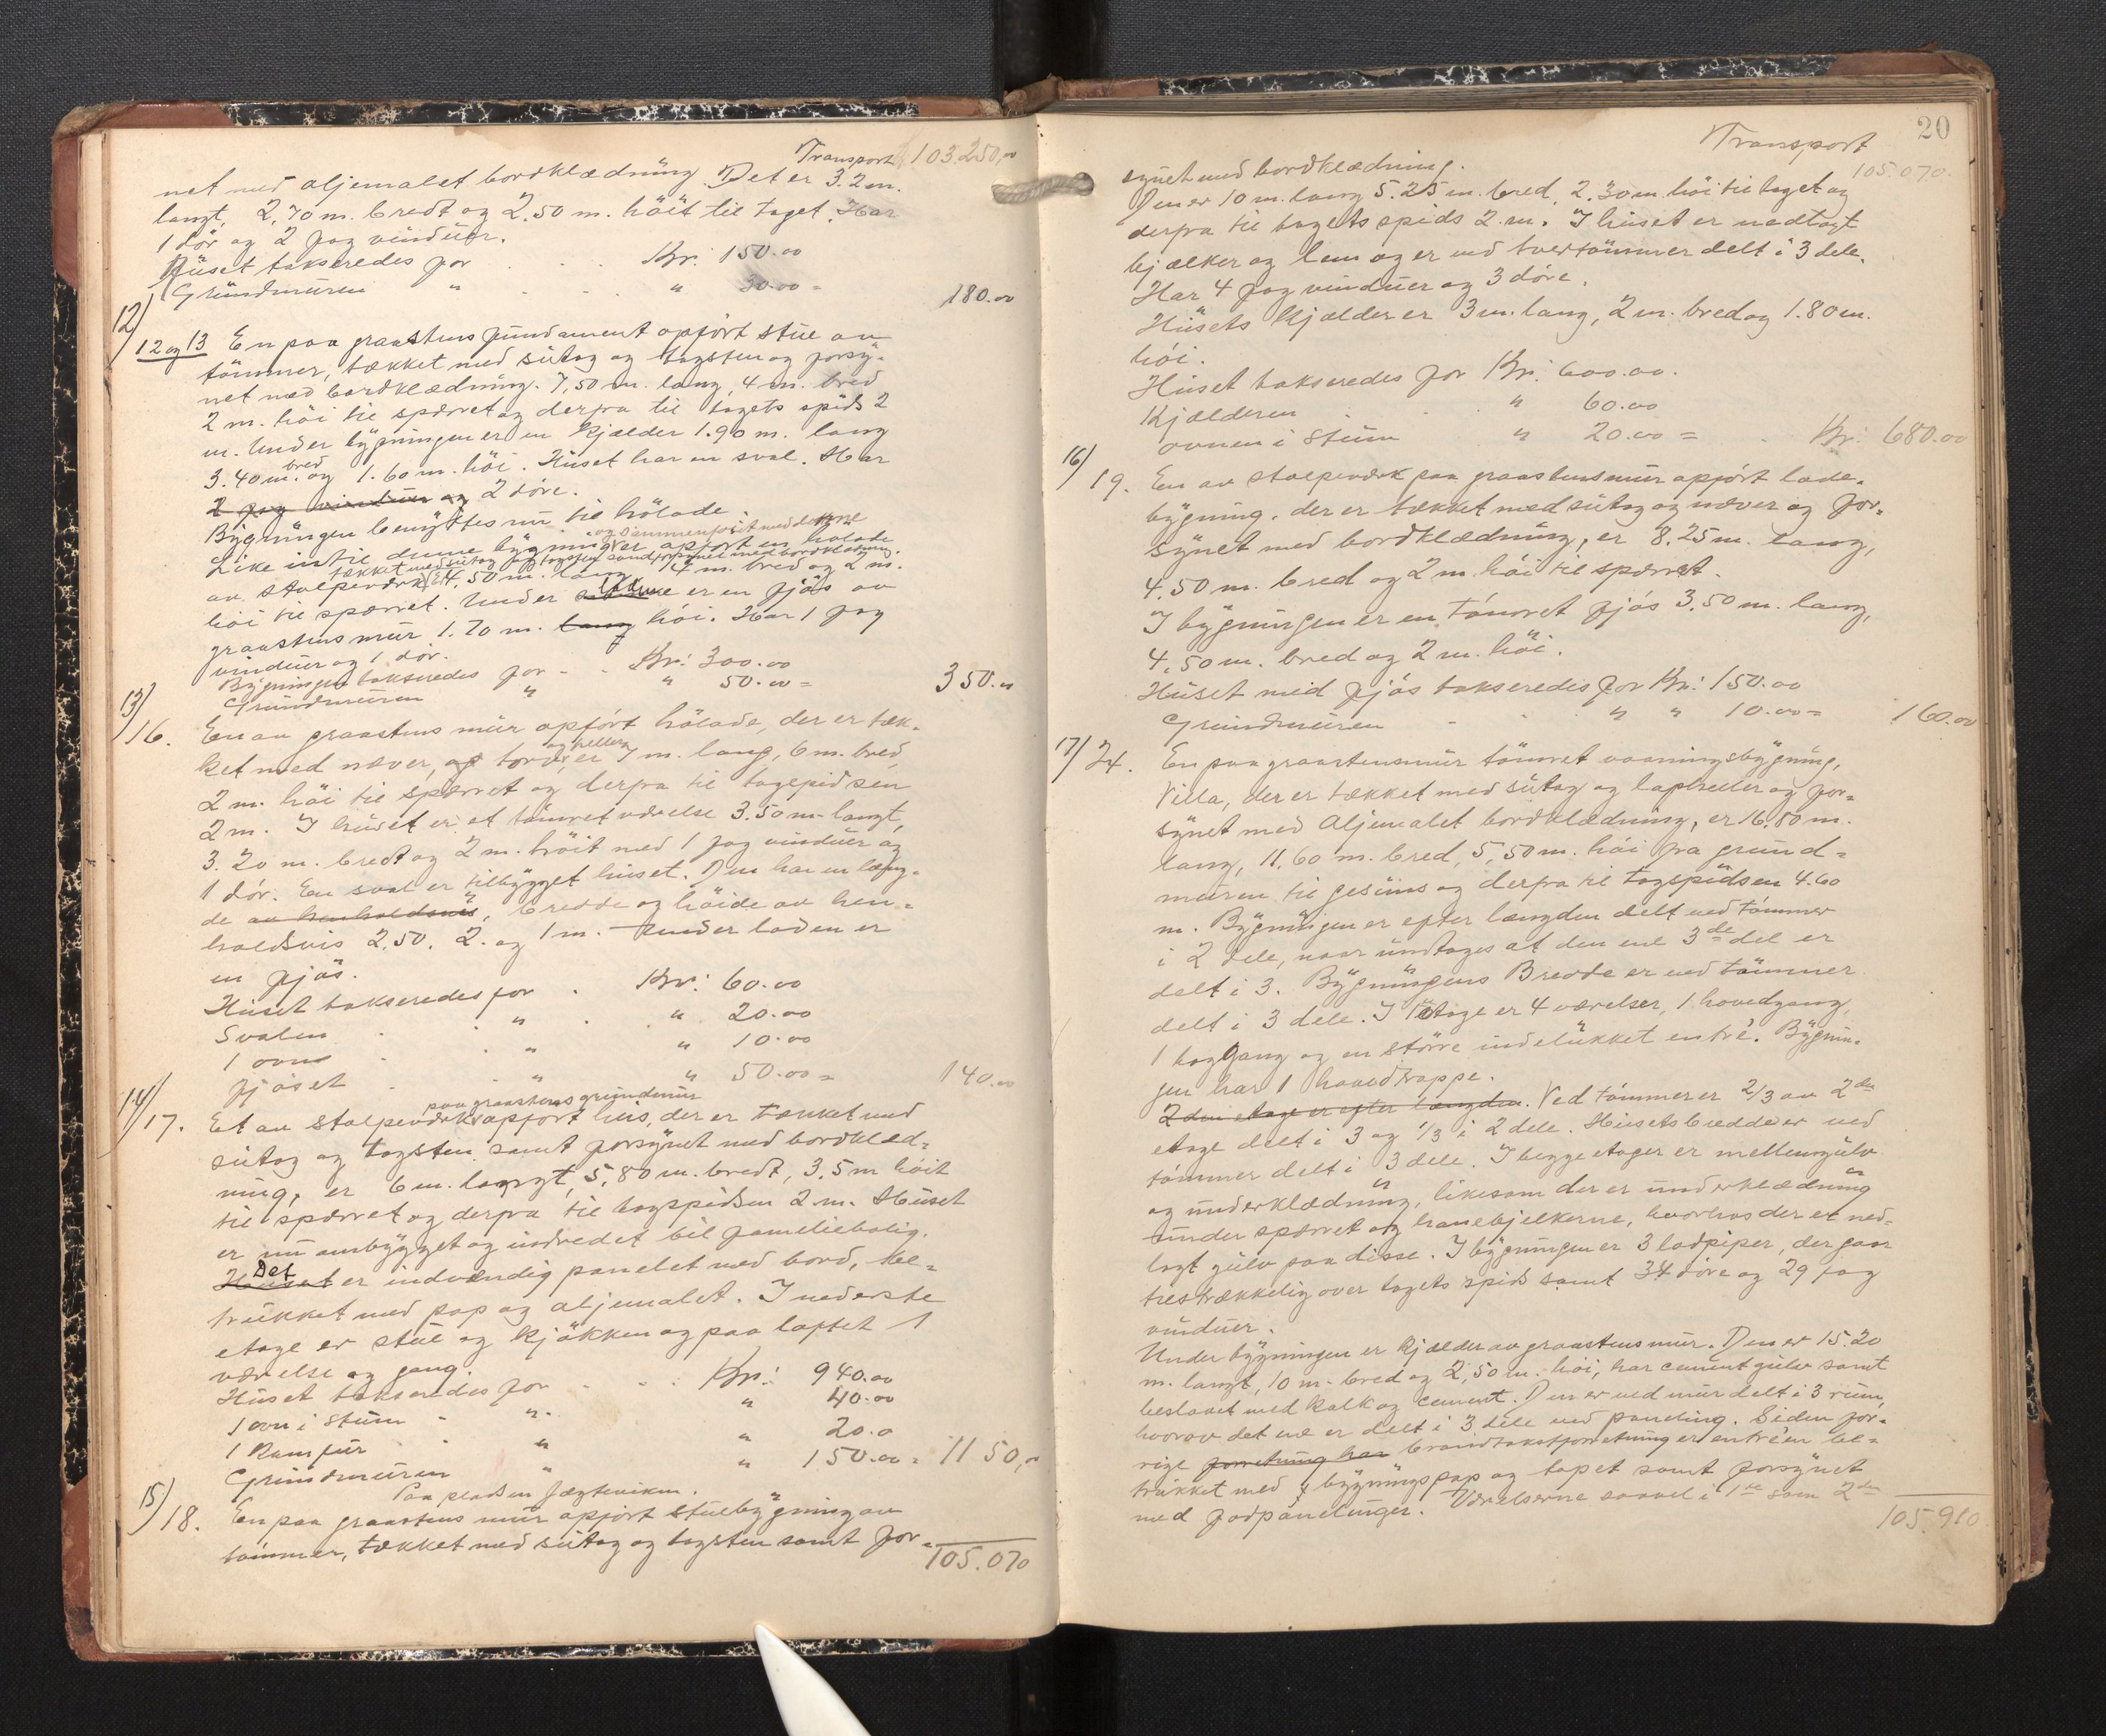 Transport 103.250,00
net med oljemalet bordklædning. Det er 3.2 m.
langt, 2,70 m. bredt og 2.50 m. höit til taget. Har
1 dör og 2 fag vinduer.
Huset takseredes for . . . Kr. 150.00
Grundmuren " . . . " 30.00 = 180.00
12)
12 og 13 En paa graastens fundament opfört stue av
tömmer, tækket med sutag og tagsten og forsy-
net med bordklædning. 7,50 m. lang, 4 m. bred
2 m. höi til spærret og derfra til tagets spids 2
m. Under bygningen er en kjælder 1.90 m. lang
3.40 m. bred og 1.60 m. höi. Huset har en sval. Har
2 fag vinduer og 2 döre.
Bygningen benyttes nu til hölade.
og sammenföiet med denne
Like indtil denne bygning er opfört en hölade
tækket med sutag og tagsten samt forsynet med bordklædning.
av stolpeværk 4.50 m. lang, 4 m. bred og 2 m.
höi til spærret. Under er en fjös av
graastens mur 1.70 m. lang höi. Har 1 fag
vinduer og 1 dör.
Bygningen takseredes for - . Kr: 300.00
Grundmuren " " 50.00 = 350.00
13)
16. En av graastens mur opfört hölade, der er tæk-
ket med næver, og torv og heller, er 7 m. lang, 6 m. bred,
2 m. höi til spærret og derfra til tagspidsen
2 m. I huset er et tömret værelse 3.50 m. langt,
3.20 m. bredt og 2 m. höit med 1 fag vinduer og
1 dör. En sval er tilbygget huset. Den har en læng-
de av henholdsvis, bredde og höide av hen-
holdsvis 2.50. 2. og 1 m. Under laden er
en fjös.
Huset takseredes for . Kr: 60.00
Svalen . " . " 20.00
1 ovn . " " 10.00
Fjöset . " " 50.00 = 140.00
14)
paa graastens grundmur
17. Et av stolpeværk opfört hus, der er tækket med
sutag og tagsten samt forsynet med bordklæd-
ning, er 6 m. langt, 5,80 m. bredt, 3.5 m höit
til spærret og derfra til tagspidsen 2 m. Huset
er nu ombygget og indredet til familiebolig.
Huset Det er indvændig panelet med bord, be-
trukket med pap og oljemalet. I nederste
etage er stue og kjökken og paa loftet 1
værelse og gang.
Huset takseredes for . . . Kr: 940.00
1 ovn i stuen - " - " 40.00
1 Komfur . " " 20.0
Grundmuren " " 150.00 = 1150,00
Paa pladsen Jægteviken.
15)
18. En paa graastens mur opfört stuebygning av
tömmer, tækket med sutag og tagsten samt for-
105.070
20
Transport
105.070.
synet med bordklædning.
Den er 10 m. lang 5.25 m. bred, 2.30 m. höi til taget og
derfra til tagets spids 2 m. I huset er nedlagt
bjælker og lem og er ved tvertömmer delt i 3 dele.
Har 4 fag vinduer og 3 döre.
Husets kjælder er 3 m. lang, 2 m. bred og 1.80 m.
höi.
Huset takseredes for Kr: 600.00.
Kjælderen . . . " 60.00
ovnen i stuen " 20.00 = . Kr: 680.00
16)
19. En av stolpeværk paa graastensmur opfört lade-
bygning, der er tækket med sutag og næver og for-
synet med bordklædning, er 8.25 m. lang,
4.50 m. bred og 2 m. höi til spærret.
I bygningen er en tömret fjös 3.50 m. lang,
4.50 m. bred og 2 m. höi.
Huset med fjös takseredes for Kr: 150.00
Grundmuren - - " " 10.00 = 160.00
17)
24. En paa graastensmur tömret vaaningsbygning,
Villa, der er tækket med sutag og lapheller og for-
synet med oljemalet bordklædning, er 16.80 m.
lang, 11.60 m. bred, 5,50 m. höi fra grund-
muren til gesims og derfra til tagspidsen 4.60
m. Bygningen er efter længden delt ved tömmer
i 2 dele, naar undtages at den ene 3de del er
delt i 3. Bygningens Bredde er ved tömmer
delt i 3 dele. I 1ste etage er 4 værelser, 1 hovedgang,
1 baggang og en större indelukket entré. Bygnin-
gen har 1 hovedtrappe.
2den etage er efter længden. Ved tömmer er 2/3 av 2den
etage delt i 3 og 1/3 i 2 dele. Husets bredde er ved
tömmer delt i 3 dele. I begge etager er mellemgulv
og underklædning, likesom der er underklædning
under spærret og hanebjelkerne, hvorhos der er ned-
lagt gulv paa disse. I bygningen er 3 ladpiper, der gaar
tilstrækkelig over tagets spids samt 34 döre og 29 fag
vinduer.
Under bygningen er kjælder av graastensmur. Den er 15.20
m. langt, 10 m. bred og 2,50 m. höi, har cementgulv samt
beslaaet med kalk og cement. Den er ved mur delt i 3 rum,
hvorav det ene er delt i 3 dele ved paneling. Siden for-
rige forretning har brandtakstforretning er entréen be-
trukket med bygningspap og tapet samt forsynet
med fodpanelinger. Værelserne saavel i 1ste som 2den
105.910